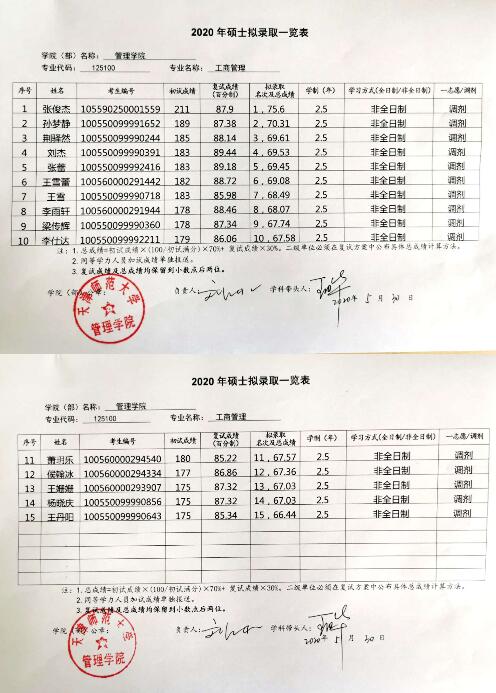 2020 年硕士拟录取一览表
学院（部）名称： 管理学院
专业代码： 125100 专业名称： 工商管理
序号 姓名 考生编号 初试成绩 复试成绩（百分制） 拟录取名次及总成绩 学制（年） 学习方式(全日制/非全日制) 一志愿/调剂
1 张俊杰 105590250001559 211 87.9 1，75.6 2.5 非全日制 调剂
2 孙梦静 100550099991652 189 87.38 2，70.31 2.5 非全日制 调剂
3 荆驿然 100550099990244 185 88.14 3，69.61 2.5 非全日制 调剂
4 刘杰 100550099990391 183 89.44 4，69.53 2.5 非全日制 调剂
5 张蕾 100550099992416 183 89.18 5，69.45 2.5 非全日制 调剂
6 王雪蕾 100560000291442 182 88.72 6，69.08 2.5 非全日制 调剂
7 王雪 100550099990718 183 85.98 7，68.49 2.5 非全日制 调剂
8 李雨轩 100560000291944 178 88.46 8，68.07 2.5 非全日制 调剂
9 梁传辉 100550099990360 178 87.34 9，67.74 2.5 非全日制 调剂
10 李仕达 100550099992211 179 86.06 10，67.58 2.5 非全日制 调剂
注：1.总成绩=初试成绩×(100/初试满分)×70%+ 复试成绩×30%。二级单位必须在复试方案中公布具体总成绩计算方法。
2.同等学力人员加试成绩单独报送。
3.复试成绩及总成绩均保留到小数点后两位。
学院（部）公章： 负责人： 学科带头人：
2020年 5 月 30 日
天津师范大学
管理学院
2020 年硕士拟录取一览表
学院（部）名称： 管理学院
专业代码： 125100 专业名称： 工商管理
序号 姓名 考生编号 初试成绩 复试成绩（百分制） 拟录取名次及总成绩 学制（年） 学习方式(全日制/非全日制) 一志愿/调剂
11 萧玥乐 100560000294540 180 85.22 11，67.57 2.5 非全日制 调剂
12 侯翰冰 100560000294334 177 86.86 12，67.36 2.5 非全日制 调剂
13 王姗姗 100560000293907 175 87.32 13，67.03 2.5 非全日制 调剂
14 杨晓庆 100550099990856 175 87.32 14，67.03 2.5 非全日制 调剂
15 王丹阳 100550099990643 175 85.34 15，66.44 2.5 非全日制 调剂
注：1.总成绩=初试成绩×(100/初试满分)×70%+ 复试成绩×30%。二级单位必须在复试方案中公布具体总成绩计算方法。
2.同等学力人员加试成绩单独报送。
3.复试成绩及总成绩均保留到小数点后两位。
学院（部）公章： 负责人： 学科带头人：
2020年 5 月 30 日
天津师范大学
管理学院